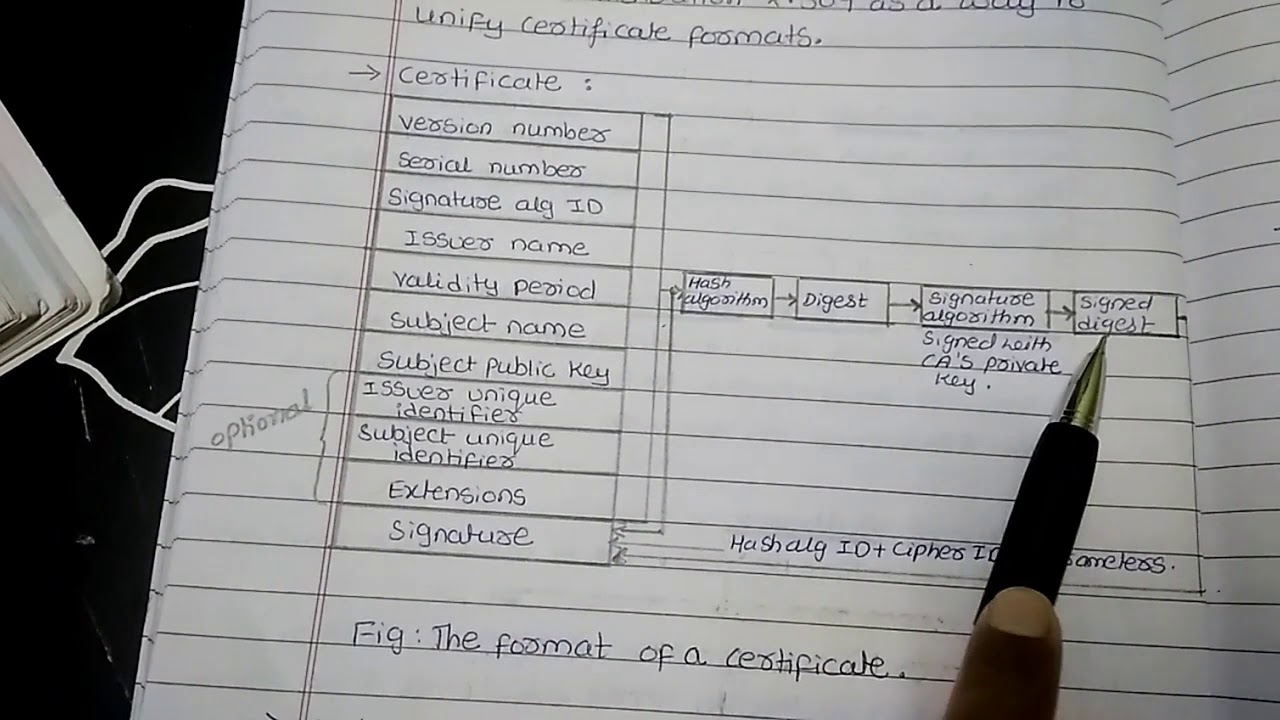 as a way to
unify certificate formats.
→ Certificate :
Version number
Serial number
Signature alg ID
Issuer name
Validity period
Subject name
Subject public key
Issuer unique
identifier
Subject unique
identifier
Extensions
Signature
optional
Hash
algorithm
Digest
Signature
algorithm
Signed with
CA'S private
key.
Signed
digest
Hash alg ID + Cipher ID
Fig : The format of a certificate.